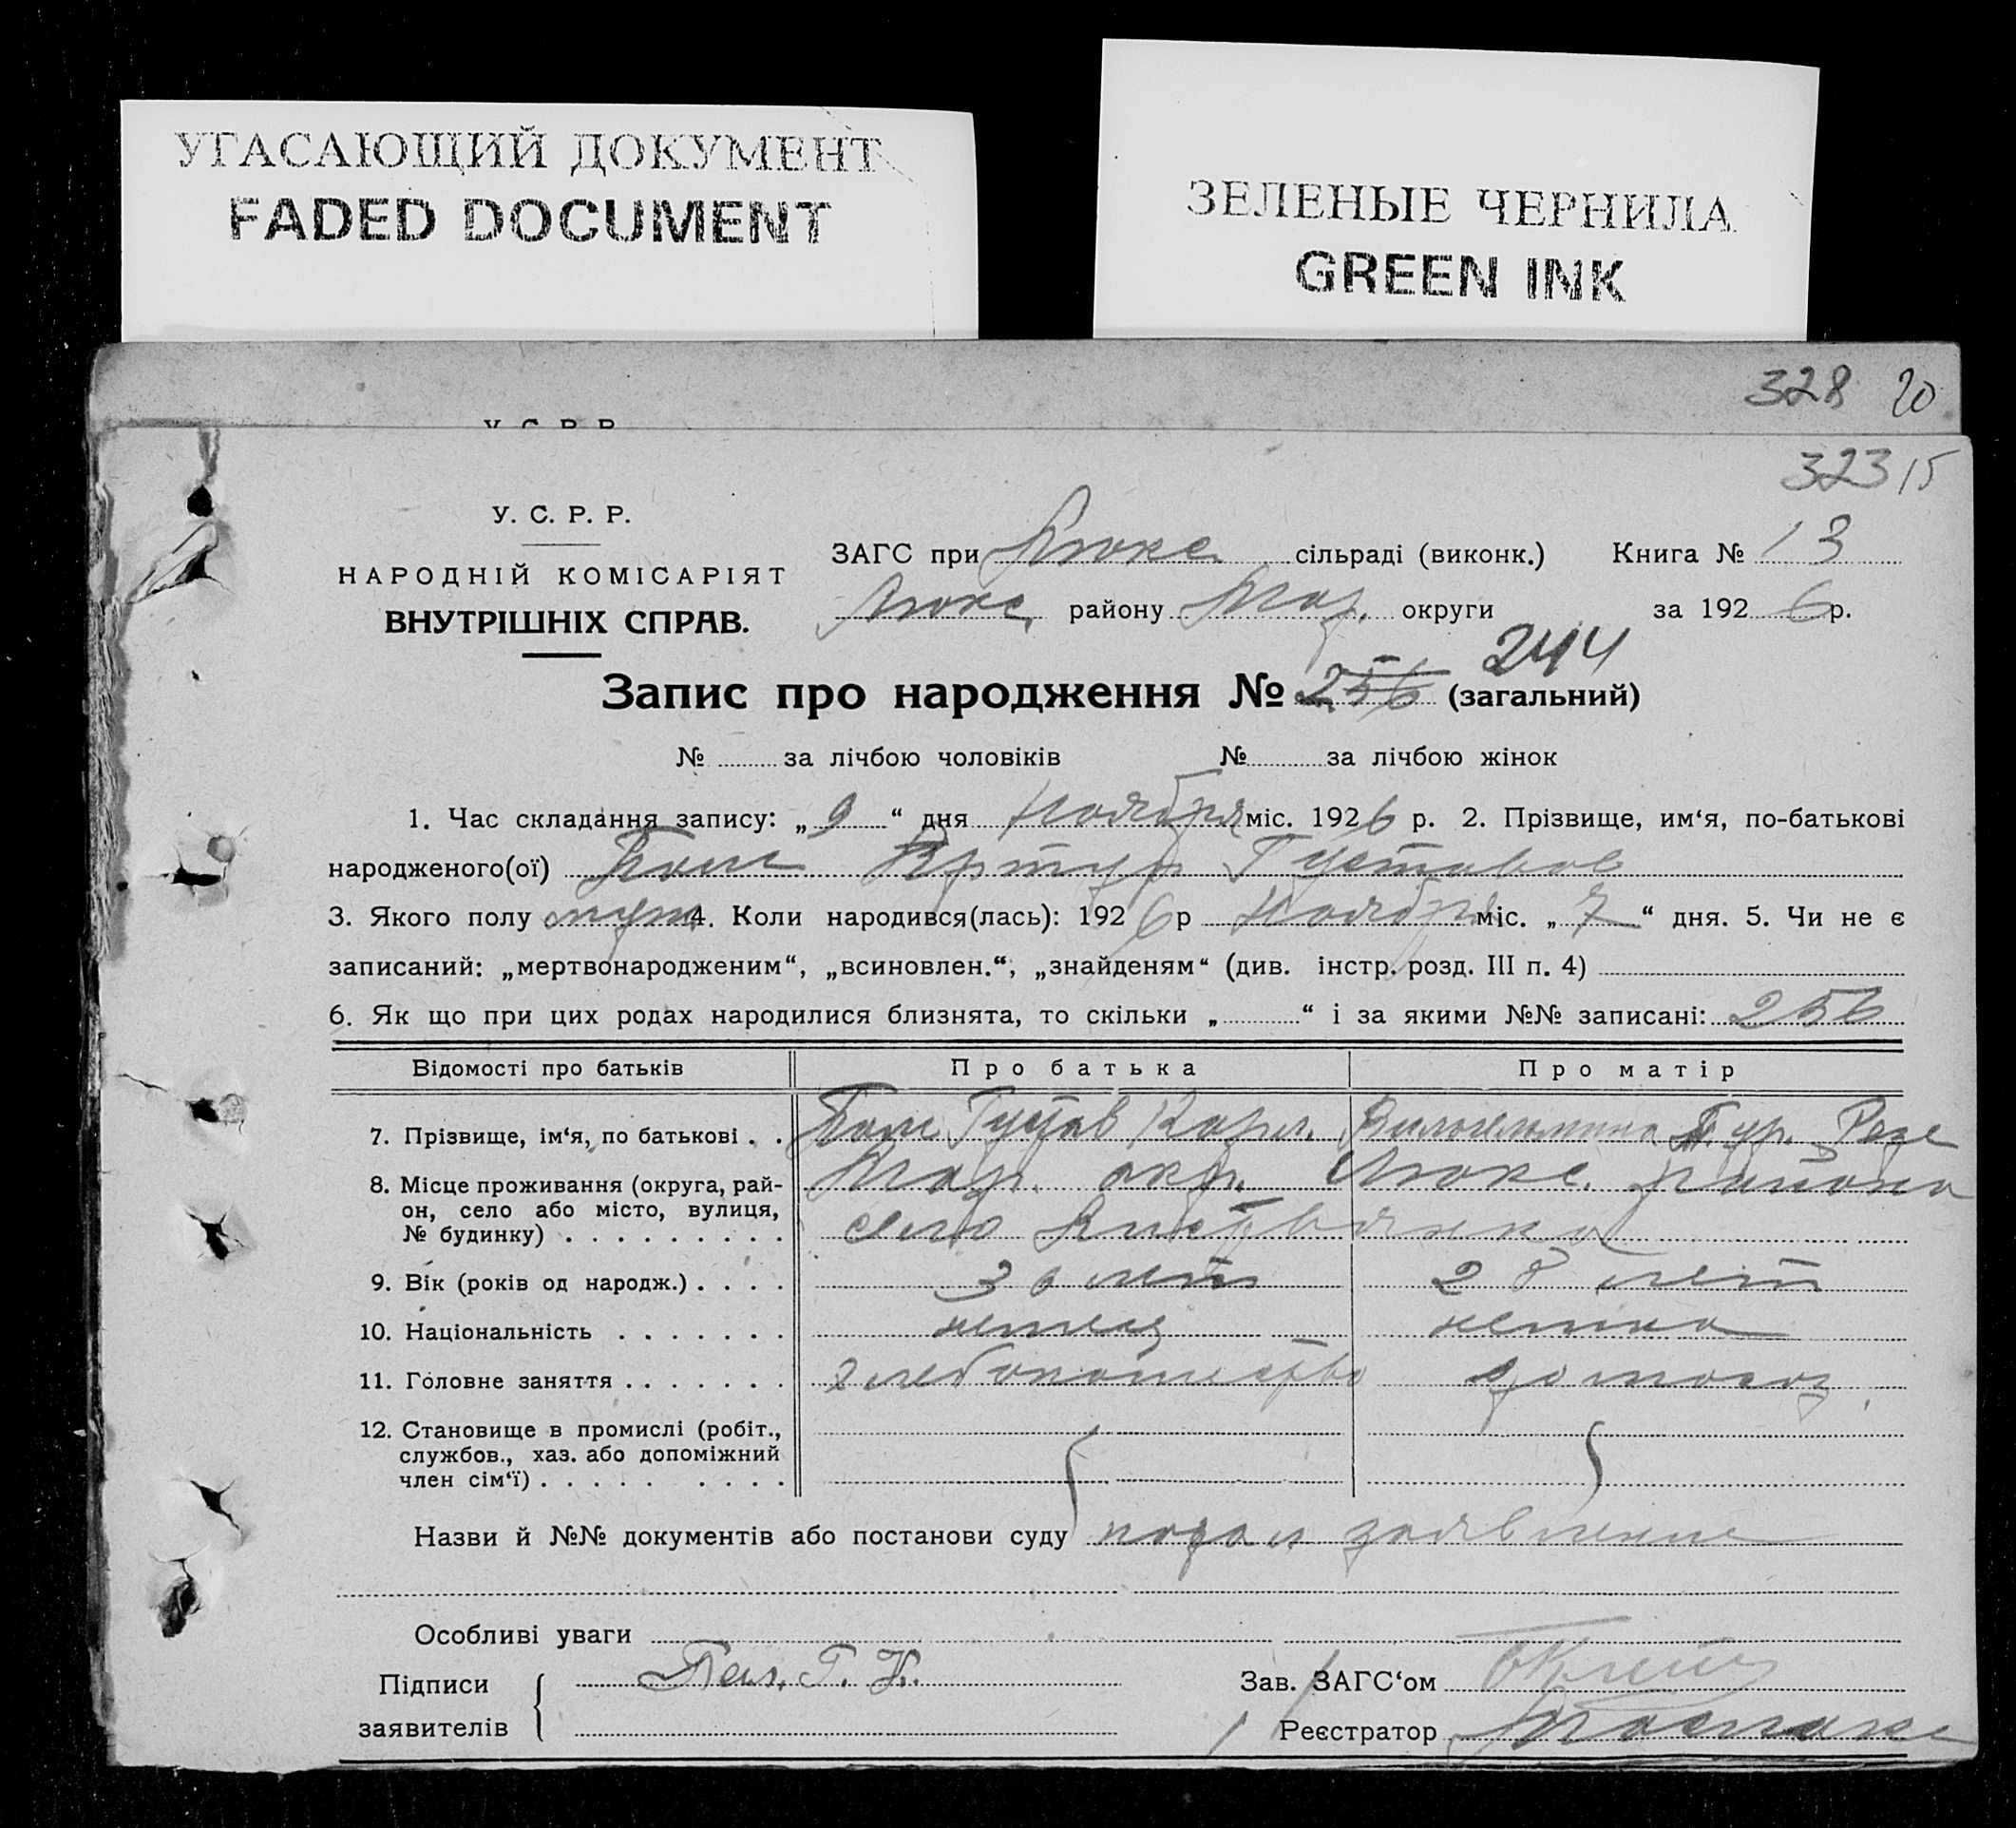 УГАСАЮЩИЙ ДОКУМЕНТ
FADED DOCUMENT
ЗЕЛЕНЫЕ ЧЕРНИЛА
GREEN INK
328 20
У. С. Р. Р.
323 15
У. С. Р. Р.
НАРОДНІЙ КОМІСАРІЯТ
ВНУТРІШНІХ СПРАВ.
ЗАГС при Люкс. сільраді (виконк.) Книга № 13
Люкс. району Мар. округи за 1926 р.
244
Запис про народження № 256 (загальний)
№ за лічбою чоловіків № за лічбою жінок
1. Час складання запису: „9“ дня Ноября міс. 1926 р. 2. Прізвище, им‘я, по-батькові
народженого(ої) Артур Густавов
3. Якого полу муж 4. Коли народився(лась): 1926 р Ноября міс. „7“ дня. 5. Чи не є
записаний: „мертвонародженим“, „всиновлен.“, „знайденям“ (див. інстр. розд. III п. 4)
6. Як що при цих родах народилися близнята, то скільки „ “ і за якими №№ записані: 256
Відомості про батьків Про батька Про матір
7. Прізвище, ім‘я, по батькові . . Густав Карл. Вильгельмина
8. Місце проживання (округа, рай-
он, село або місто, вулиця,
№ будинку) . . . . . . . . .
Мар. окр. Люкс. района
село
9. Вік (років од народж.) . . . . 30 лет 28 лет
10. Національність . . . . . . . немец немка
11. Головне заняття . . . . . . . хлебопашество домохоз.
12. Становище в промислі (робіт.,
службов., хаз. або допоміжний
член сім‘ї) . . . . . . . . .
Назви й №№ документів або постанови суду подал заявление
Особливі уваги
Підписи
заявителів
Г. К.
Зав. ЗАГС‘ом
Реєстратор